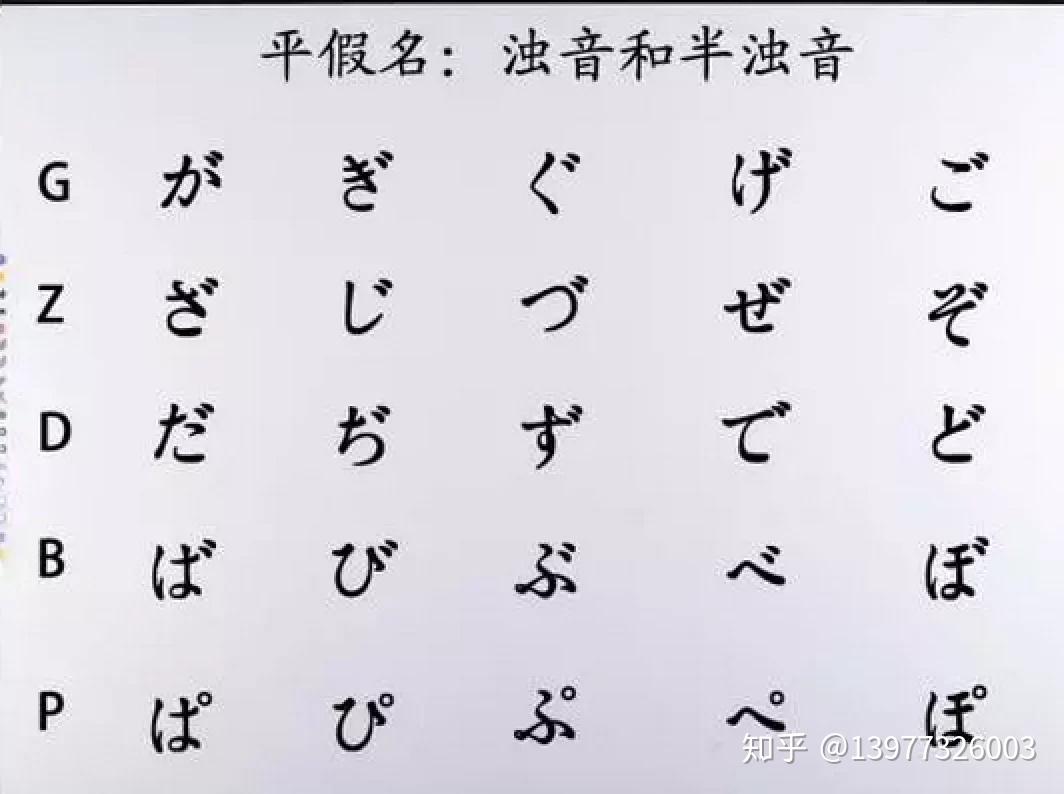 平假名：浊音和半浊音
G が ぎ ぐ げ ご
Z ざ じ づ ぜ ぞ
D だ ぢ ず で ど
B ば び ぶ べ ぼ
P ぱ ぴ ぷ ぺ ぽ
知乎 @13977326003